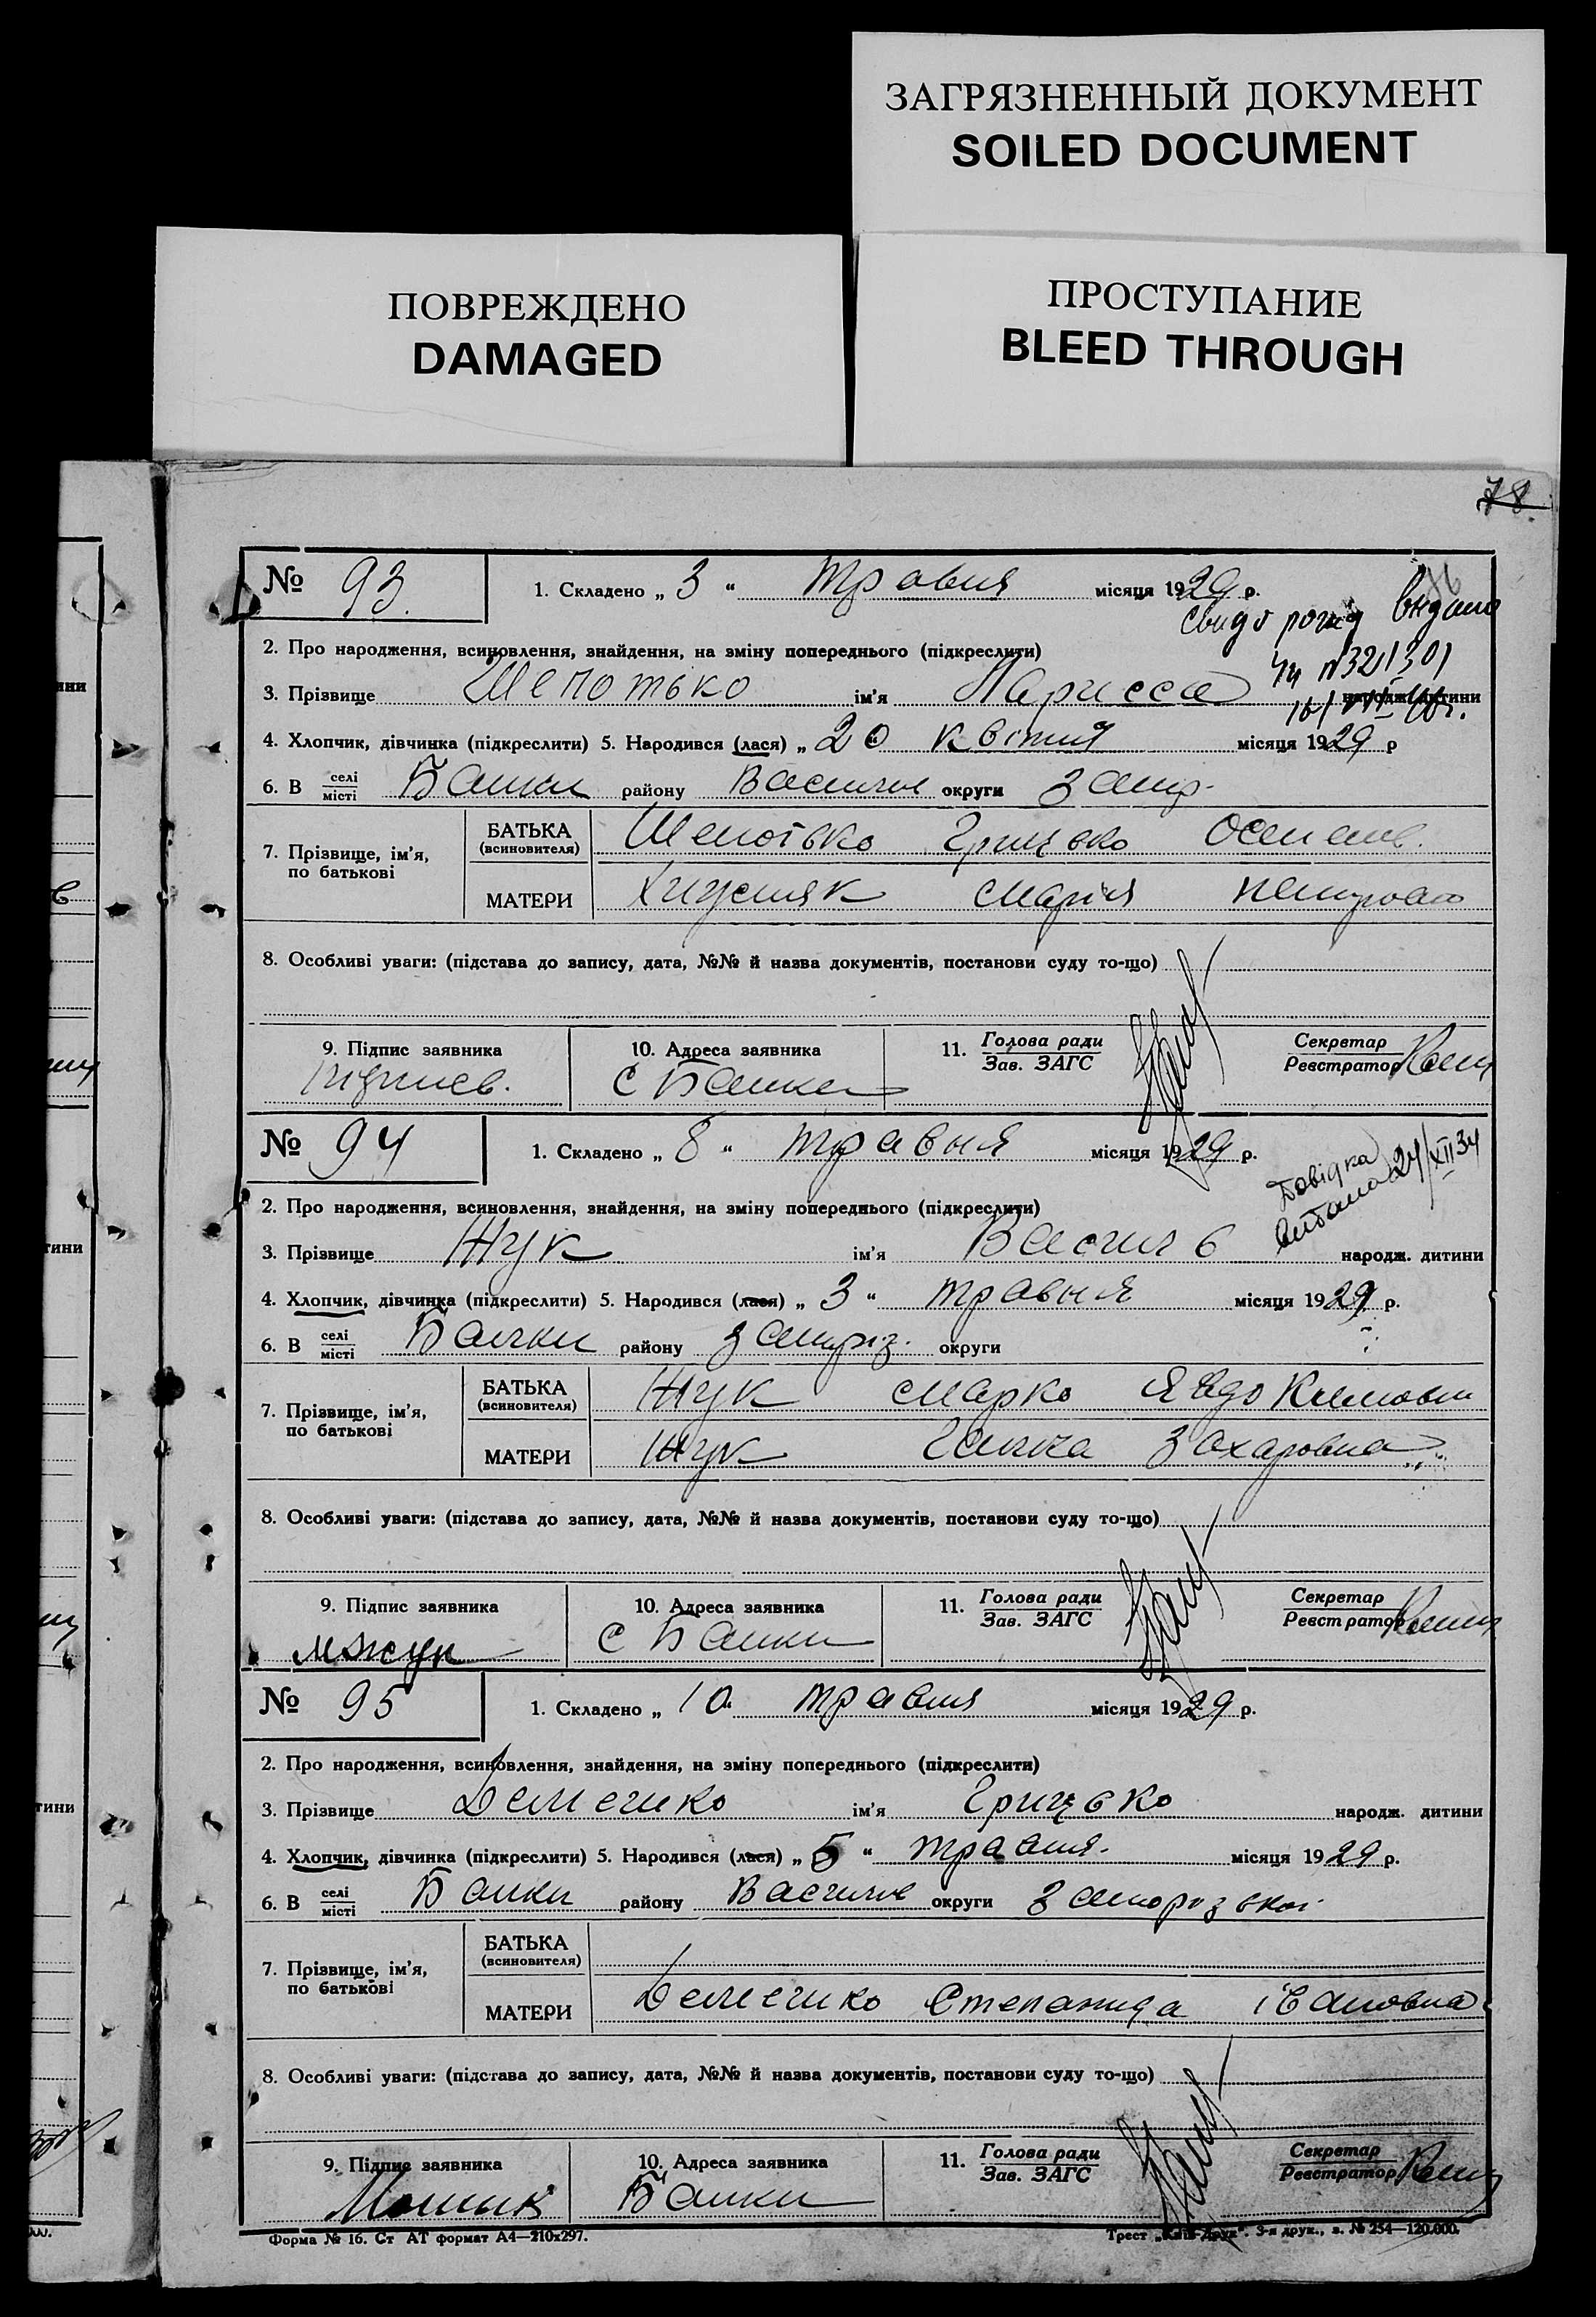 ЗАГРЯЗНЕННЫЙ ДОКУМЕНТ
SOILED DOCUMENT
ПОВРЕЖДЕНО
DAMAGED
ПРОСТУПАНИЕ
BLEED THROUGH
78.
№ 93. 1. Складено „ 3 “ травня місяця 1929 р.
видано
2. Про народження, всиновлення, знайдення, на зміну попереднього (підкреслити)
№321301
3. Прізвище Шепотько ім'яЛарисса народж. дитини
4. Хлопчик, дівчинка (підкреслити) 5. Народився (лася) „ 20 “ квітня місяця 1929 р
6. В селі/місті Балки району Василів округи Запор.
7. Прізвище, ім'я, по батькові
БАТЬКА (всиновителя) Шепотько Грицько
МАТЕРИ Марія
8. Особливі уваги: (підстава до запису, дата, №№ й назва документів, постанови суду то-що)
9. Підпис заявника
10. Адреса заявника
11. Голова ради/Зав. ЗАГС
Секретар/Реєстратор
С Балки
№ 94 1. Складено „ 8 “ травня місяця 1929 р.
Довідка
видана 24/XII 34
2. Про народження, всиновлення, знайдення, на зміну попереднього (підкреслити)
3. Прізвище Жук ім'я Василь народж. дитини
4. Хлопчик, дівчинка (підкреслити) 5. Народився (лася) „ 3 “ травня місяця 1929 р.
6. В селі/місті Балки району Запоріз. округи
7. Прізвище, ім'я, по батькові
БАТЬКА (всиновителя) Жук Марко Явдокимович
МАТЕРИ Жук Ганна Захаровна
8. Особливі уваги: (підстава до запису, дата, №№ й назва документів, постанови суду то-що)
9. Підпис заявника
10. Адреса заявника
11. Голова ради/Зав. ЗАГС
Секретар/Реєстратор
М Жук С Балки
№ 95 1. Складено „ 10 “ травня місяця 1929 р.
2. Про народження, всиновлення, знайдення, на зміну попереднього (підкреслити)
3. Прізвище Деменико ім'я Грицько народж. дитини
4. Хлопчик, дівчинка (підкреслити) 5. Народився (лася) „ 5 “ травня. місяця 1929 р.
6. В селі/місті Балки району Василів округи Запорузької
7. Прізвище, ім'я, по батькові
БАТЬКА (всиновителя)
МАТЕРИ Деменико Степанида Івановна
8. Особливі уваги: (підстава до запису, дата, №№ й назва документів, постанови суду то-що)
9. Підпис заявника
10. Адреса заявника
11. Голова ради/Зав. ЗАГС
Секретар/Реєстратор
Балки
Форма № 16. Ст АТ формат А4—210х297.
Трест „Київ-Друк“. 3-я друк., з. № 254—120.000.